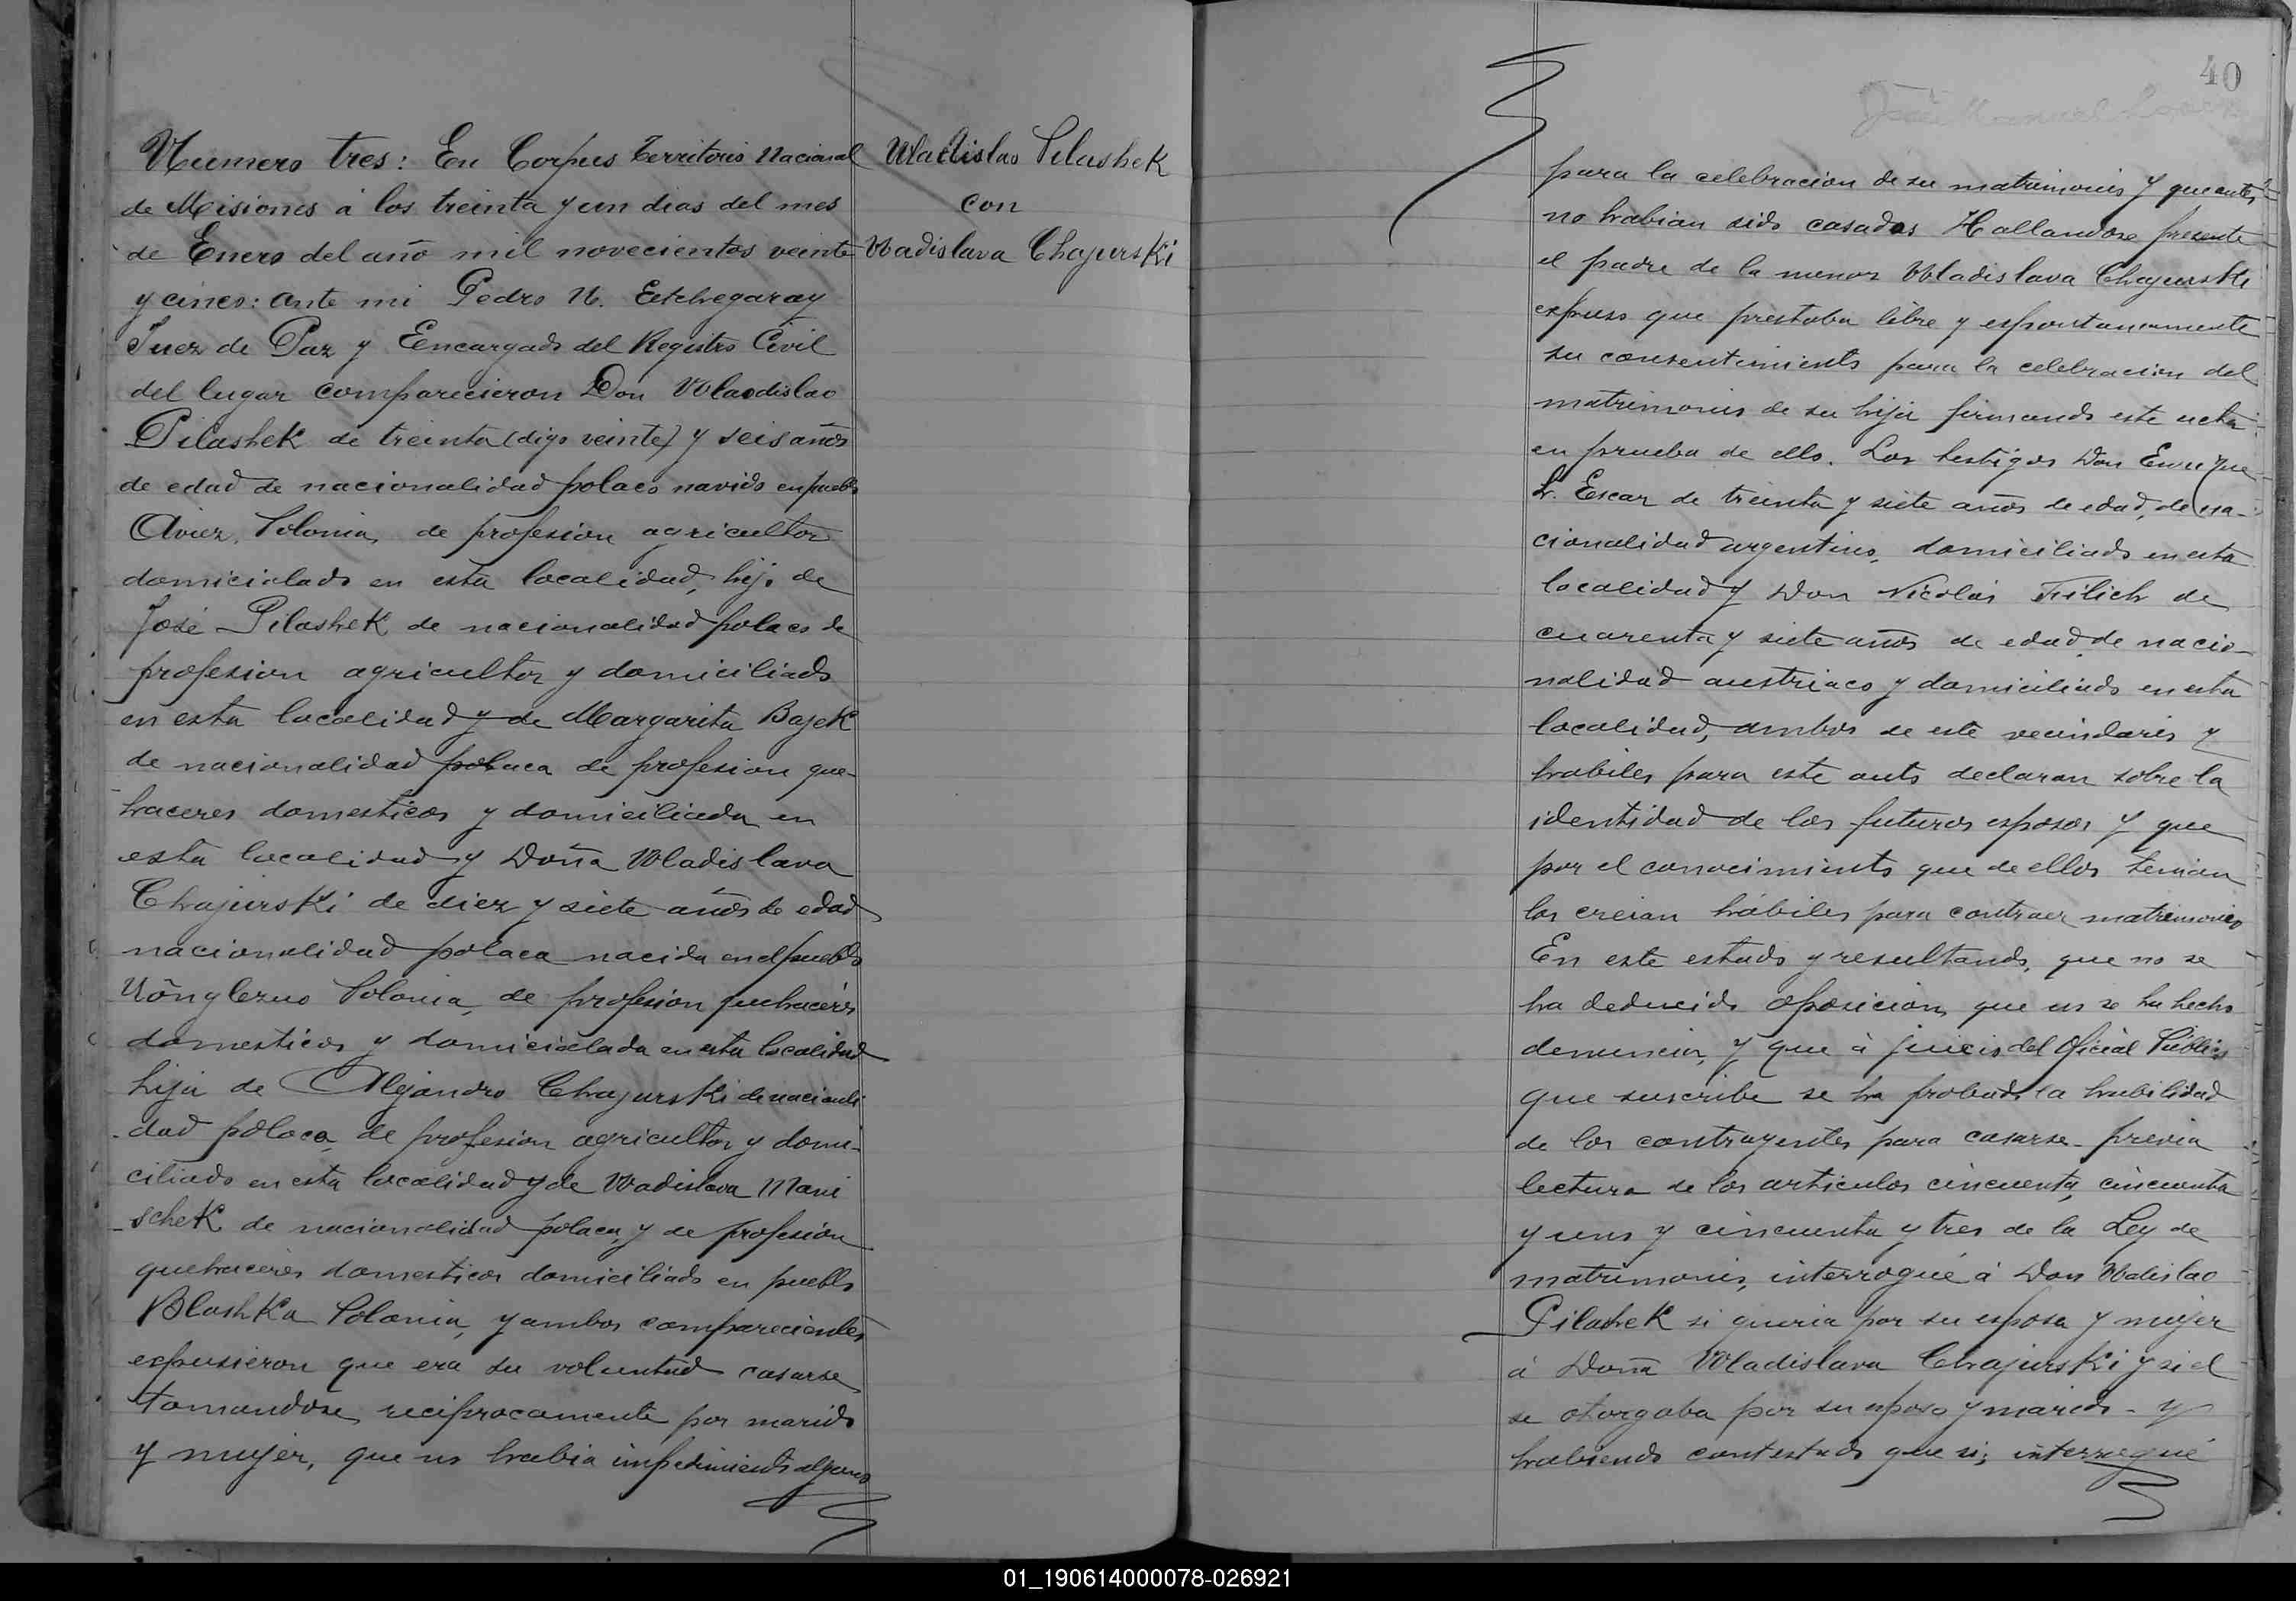 Numero tres: En Corpus Territorio Nacional
de Misiones á los treinta y un dias del mes
de Enero del año mil novecientos veinte
y cinco: ante mi Pedro N. Etchegaray
Juez de Paz y Encargado del Registro Civil
del lugar comparecieron Don Wladislao
Pilashek de treinta (digo veinte) y seis años
de edad de nacionalidad polaco navido en pueblo
Aviez, Polonia, de profesion agricultor
domicialado en esta localidad, hijo de
José Pilashek de nacionalidad polaco de
profesion agricultor y domiciliado
en esta localidad y de Margarita Bajek
de nacionalidad polaca de profesion que-
haceres domesticos y domiciliada en
esta localidad y Doña Wladislava
Chajurski de diez y siete años de edad
nacionalidad polaca nacida en el pueblo
Polonia, de profesion quehaceres
domesticos y domicialada en esta localidad
hija de Alejandro Chajurski de nacionali
dad polaca, de profesion agricultor y domi-
ciliado en esta localidad y de Wadislava Mani
schek de nacionalidad polaca, y de profesión
quehaceres domesticos domiciliado en pueblo
Blashka Polonia, y ambos comparecientes
expusieron que era su voluntad casarse
tomandose reciprocamente por marido
y mujer, que no habia impedimento alguno
Wladislao Pilashek
con
Wadislava Chajurski
40
para la celebracion de su matrimonio y que antes
no habian sido casados Hallandose presente
el padre de la menor Wladislava Chajurski
expuso que prestaba libre y espontaneamente
su consentimiento para la celebracion del
matrimonio de su hija firmando este acta
en prueba de ello. Los testigos Don Enrique
L. Escar de treinta y siete años de edad, de na-
cionalidad argentino, domiciliado en esta
localidad y Don Nicolás Filich de
cuarenta y siete años de edad de nacio-
nalidad austriaco y domiciliado en esta
localidad, ambos de este vecindario y
habiles para este auto declaran sobre la
identidad de los futuros esposos y que
por el conocimiento que de ellos tenian
los creian hábiles para contraer matrimonio
En este estado y resultando, que no se
ha deducido oposicion, que no se ha hecho
denuncia, y que á juicio del Oficial Publico
que suscribe se ha probado la habilidad
de los contrayentes para casarse- previa
lectura de los articulos cincuenta, cincuenta
y uno y cincuenta y tres de la Ley de
matrimonio, interrogué á Don Wadislao
Pilashek si queria por su esposa y mujer
á Doña Wladislava Chajurski y si el
se otorgaba por su esposo y marido- y
habiendo contestado que si; interrogué
01_190614000078-026921